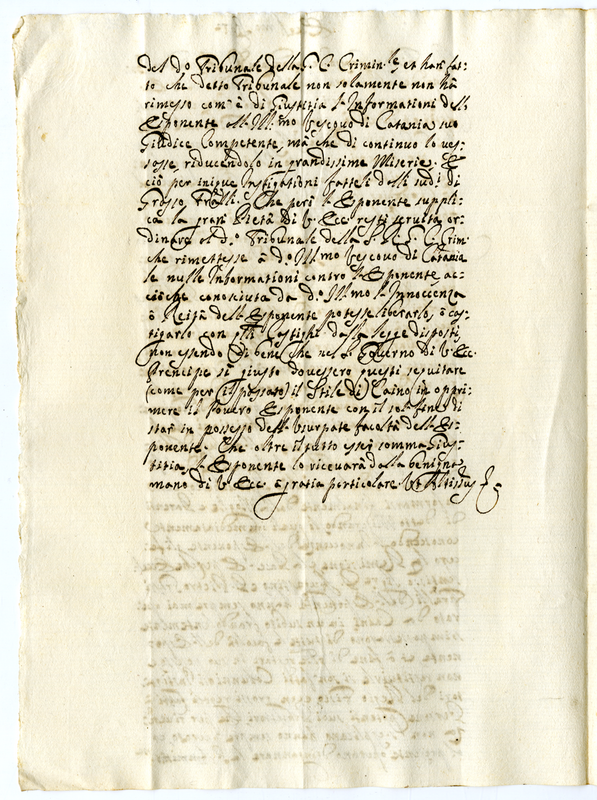 del d.º Tribunale della G. C. Crimin.le, et han fat-
to che detto Tribunale non solamente non hà
rimesso com'è di Giustitia l'Informationi dell'
Esponente all'Ill.mo Vescovo di Catania suo
Giudice Competente, mà che di continuo lo ves-
sasse, riducendolo in grandissime Miserie. E
ciò per inique Instigationi fatteli dalli sud.i di
Grosso Fratelli. Che però l'Esponente suppli-
ca la gran Pietà di V. Ecc. resti servita or-
dinare al d.º Tribunale della G. C. Crim.
che rimettesse à d.º Ill.mo Vescovo di Catania
le nulle Informationi contro l'Esponente, ac-
ciòche conosciuta da d.º Ill.mo l'Innocenza
ò Reità dell'Esponente potesse liberarlo, ò cas-
tigarlo con Castighi dalla legge disposti,
non essendo di bene che nel Governo di V. Ecc.
Prencipe sì giusto dovessero questi seguitare
(come per il passato) il Stile di Caino in oppri-
mere il povero Esponente con il sol fine di
star in possesso dell'Usurpate facoltà dell'Es-
ponente. Che oltre il tutto esser somma Gius-
titia, l'Esponente lo riceverà dalla benigna
mano di V. Ecc. à gratia particolare. Ut Altissimus